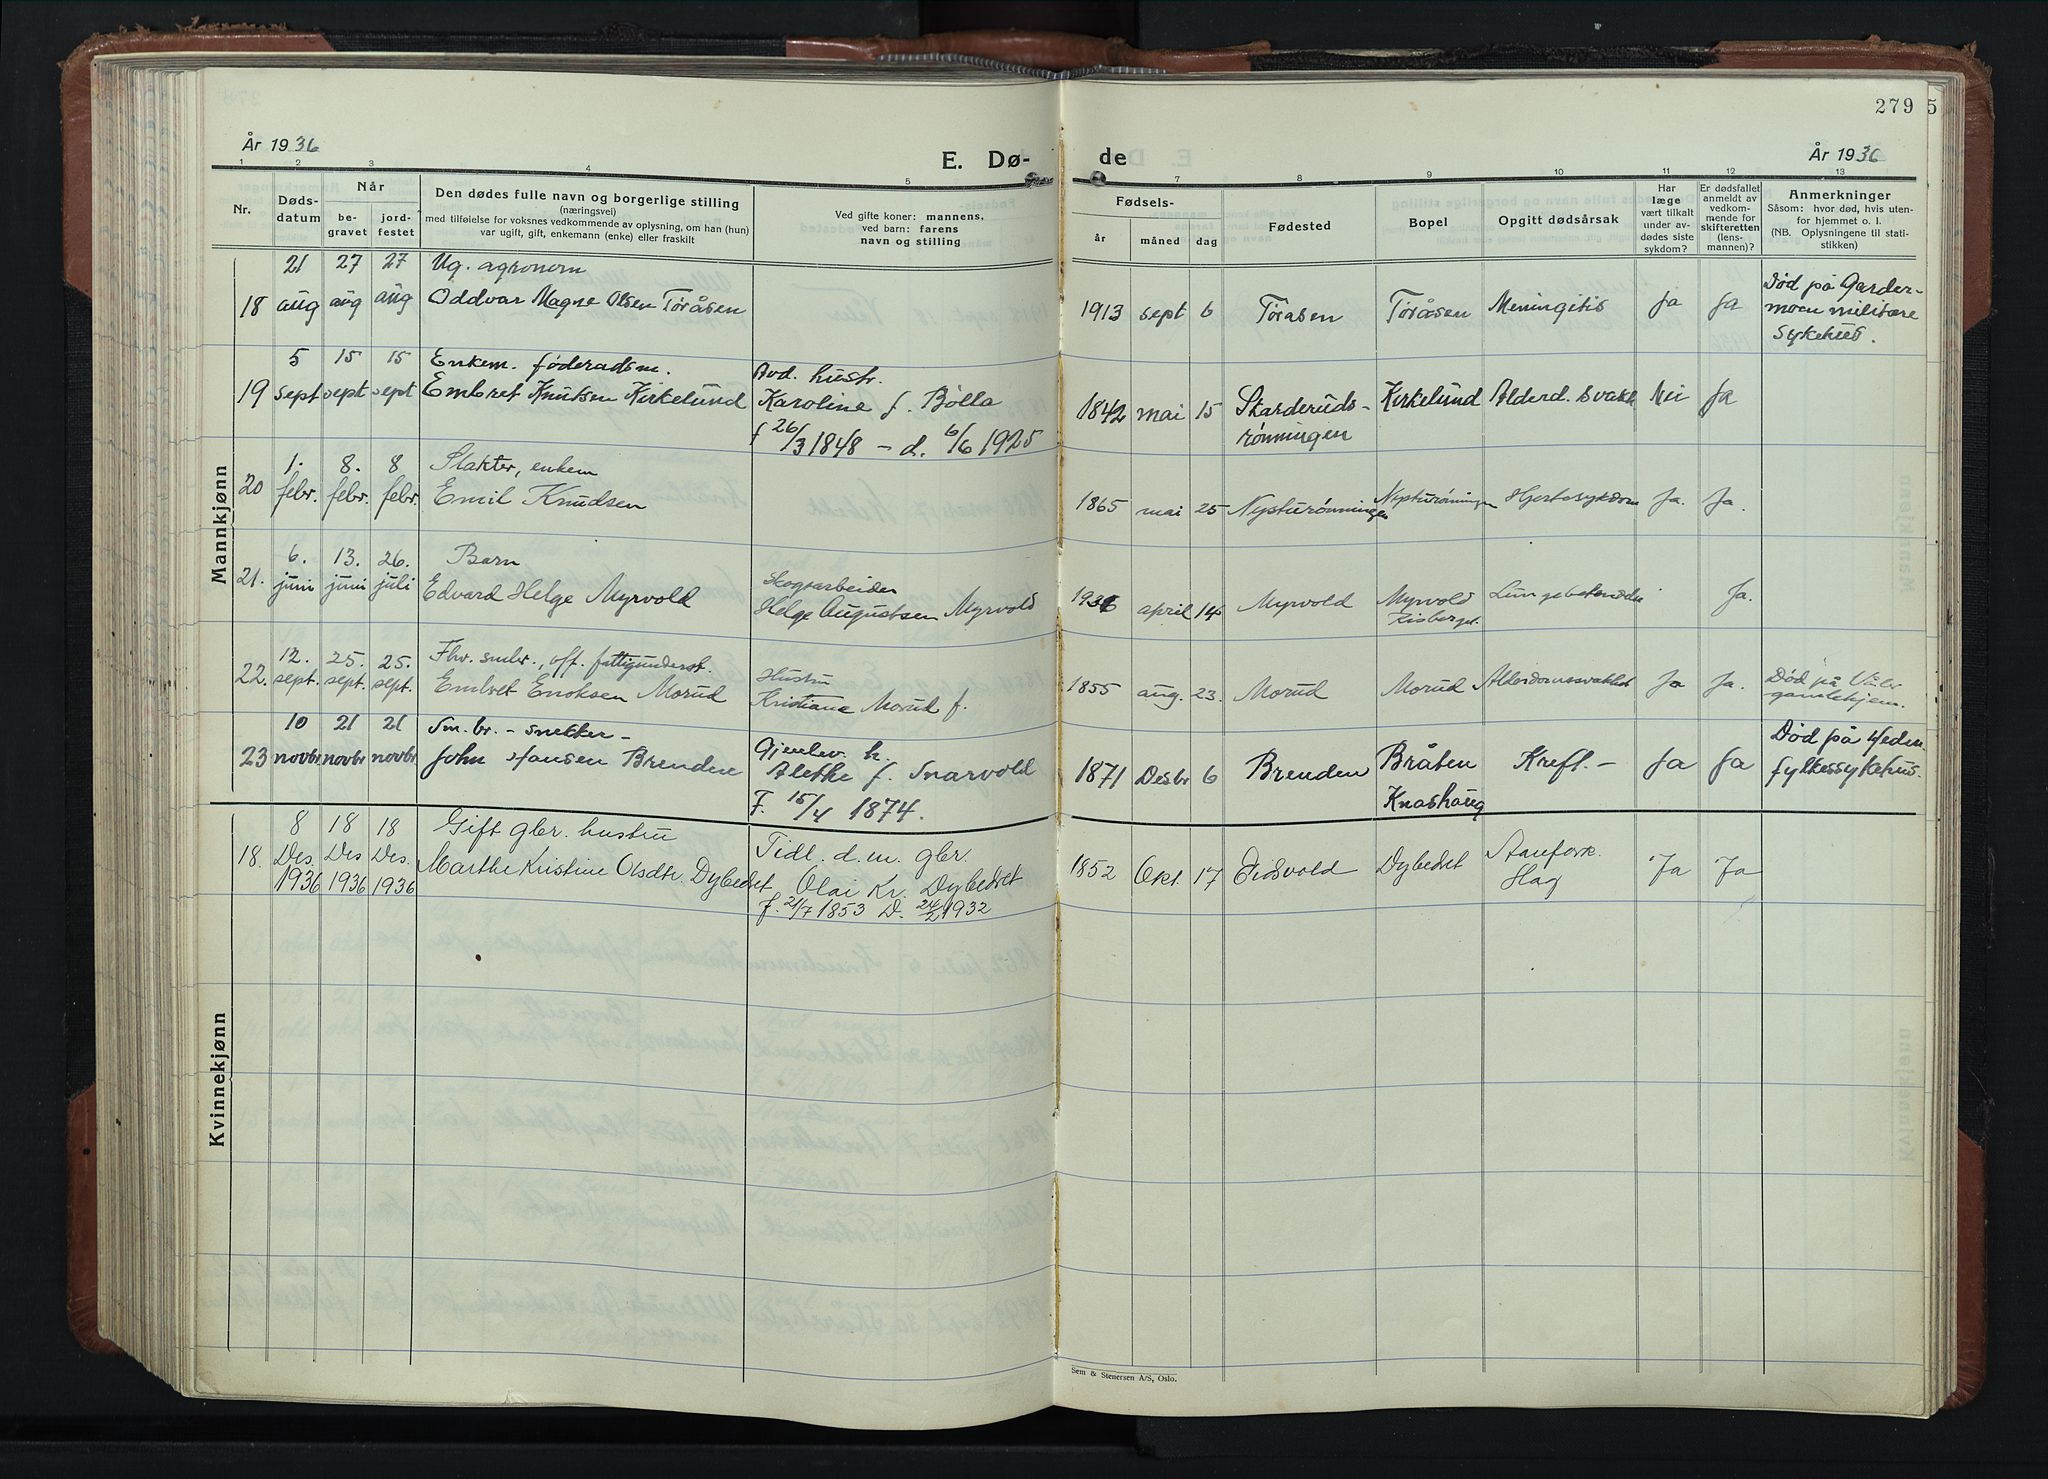 279
5
År 1936
E. Dø-
de
År 1936
1 2 3 4 5
7 8 9 10 11 12 13
Nr.
Døds-
datum
Når
be-
gravet
jord-
festet
Den dødes fulle navn og borgerlige stilling
(næringsvei)
med tilføielse for voksnes vedkommende av oplysning, om han (hun)
var ugift, gift, enkemann (enke) eller fraskilt
Ved gifte koner: mannens,
ved barn: farens
navn og stilling
Fødsels-
år måned dag
Fødested
Bopel
Opgitt dødsårsak
Har
læge
vært tilkalt
under av-
dødes siste
sykdom?
Er dødsfallet
anmeldt av
vedkom-
mende for
skifteretten
(lens-
mannen)?
Anmerkninger
Såsom: hvor død, hvis uten-
for hjemmet o. l.
(NB. Oplysningene til stati-
stikken)
Mannkjønn
21 27 27 Ug. agronom
18 aug aug aug Oddvar Magne Olsen Tøråsen
1913 sept 6 Tøråsen Tøråsen Meningitis Ja Ja
Død på Garder-
moen militære
sykehus.
5 15 15 Enkem. føderadsm.
19 sept sept sept Embret Knutsen Kirkelund
Avd. hustr.
Karoline f. Bolla
f 26/3 1848 – d. 6/6 1925
1842 mai 15 Skarderuds-
rønningen
Kirkelund Alderd. svakh Nei Ja
1. 8. 8 Slakter, enkem
20 febr. febr. febr. Emil Knudsen
1865 mai 25 Nysturønningen Nysturønningen Hjertesykdom Ja. Ja.
6. 13. 26. Barn
21. juni juni juli Edvard Helge Myrvold
Skogsarbeider
Helge Augustsen Myrvold
1936 april 14 Myrvold Myrvold
Risberget
Ja.
12. 25. 25. Fhv. smbr., off. fattigunderst.
22. sept. sept. sept. Embret Eriksen Morud
Hustru
Kristiane Morud f.
1855 aug. 23. Morud Morud Alderdomssvakhet Ja Ja.
Død på Våler
gamlehjem.
10 21 21 Sm. br. – snekker –
23 novbr novbr novbr John Hansen Brenden
Gjenlev. h.
Alethe f. Snarvold
F. 15/4 1874.
1871 Desbr 6 Brenden Bråten
Knashaug
Kreft. – Ja Ja
Død på Hedm
fylkessykehus.
Kvinnekjønn
8 18 18 Gift gbr. hustru
18. Des. Des Des. Marthe Kristine Olsdtr. Dybedret
1936 1936 1936
Tidl. d. m. gbr.
Olai Kr. Dybedret
f. 21/7 1853 D. 24/2 1932
1852 Okt. 17 Eidsvold Dybedret
Ja Ja
Sem & Stenersen A/S, Oslo.